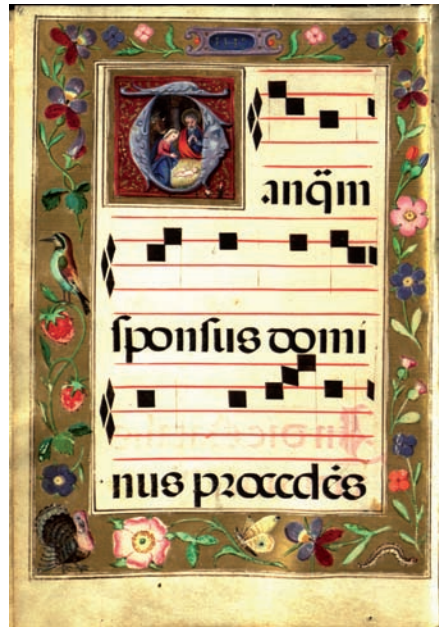 Tanq̈m
ſponſus domi
nus procedés